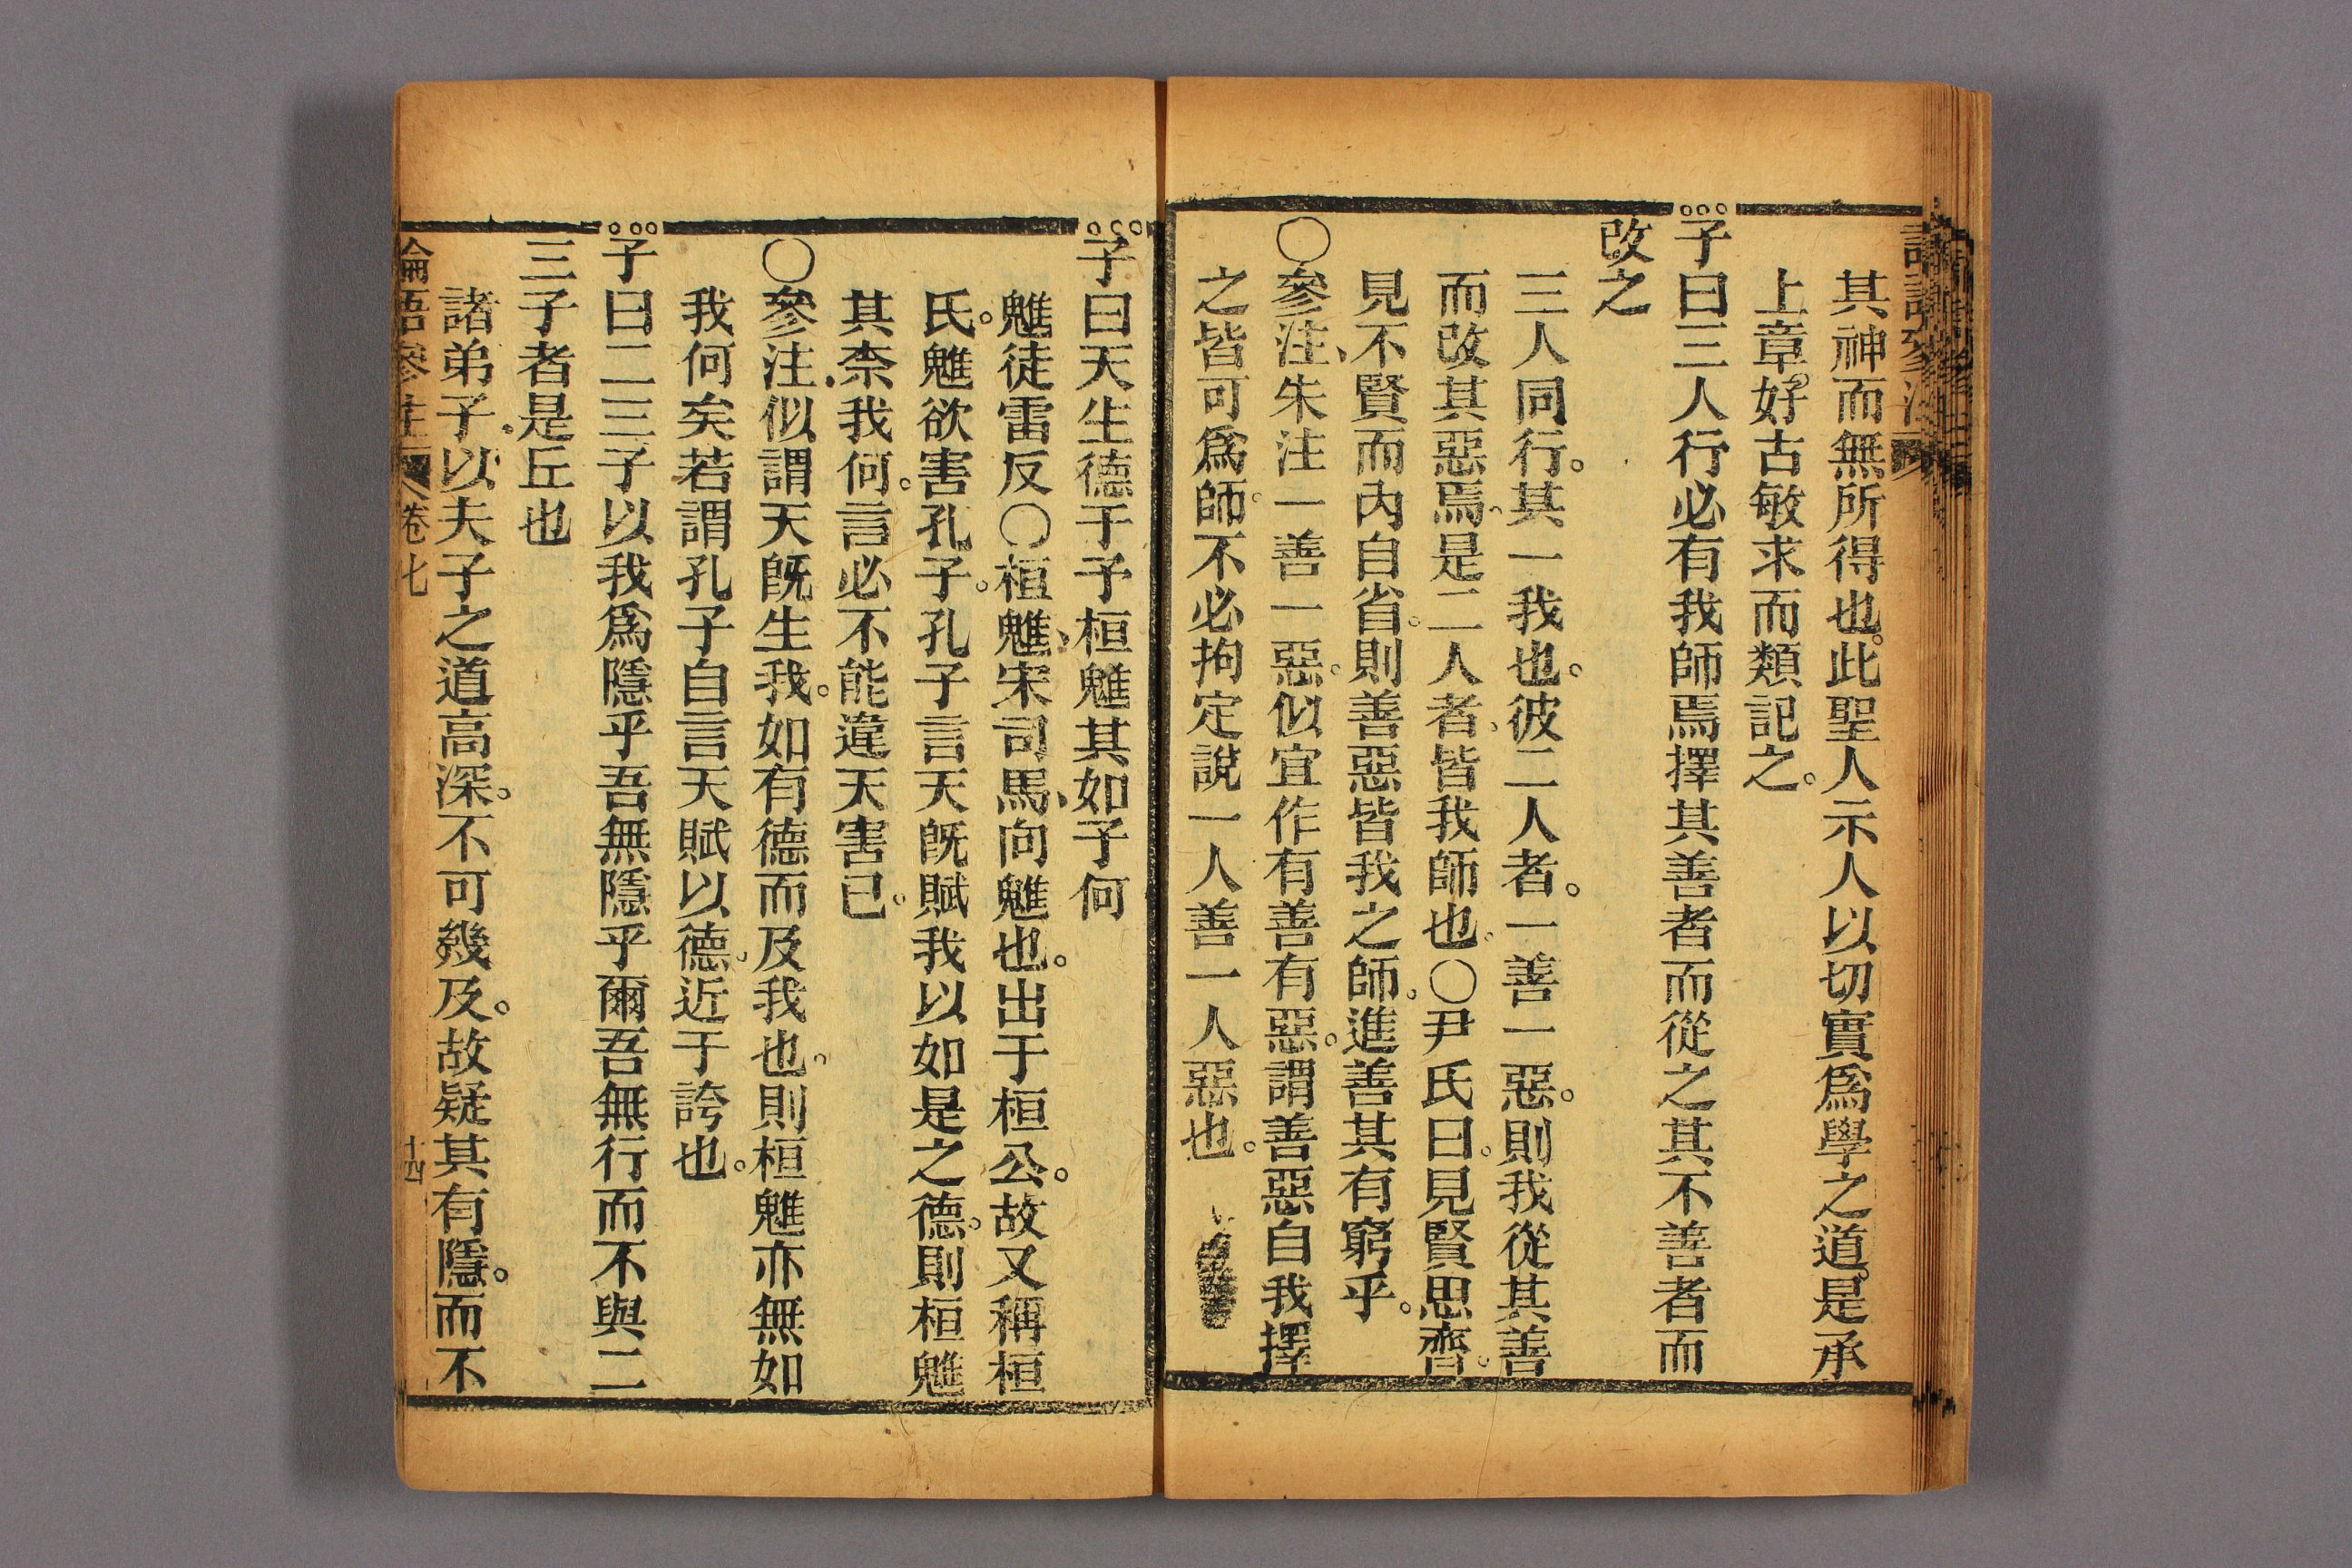 其神而無所得也。此聖人示人以切實爲學之道。是承
上章。好古敏求而類記之。
子曰三人行必有我師焉擇其善者而從之其不善者而
改之
三人同行。其一我也。彼二人者。一善一惡。則我從其善
而改其惡焉。是二人者、皆我師也。○尹氏曰。見賢思齊。
見不賢而內自省。則善惡皆我之師。進善其有窮乎。
○參注、朱注一善一惡。似宜作有善有惡。謂善惡自我擇
之皆可爲師。不必拘定說一人善一人惡也。
子曰天生德于予桓魋其如予何
魋徒雷反○桓魋、宋司馬、向魋也。出于桓公。故又稱桓
氏。魋欲害孔子。孔子言天既賦我以如是之德。則桓魋
其柰我何。言必不能違天害己。
○參注、似謂天既生我。如有德而及我也。則桓魋亦無如
我何矣若謂孔子自言天賦以德、近于誇也。
子曰二三子以我爲隱乎吾無隱乎爾吾無行而不與二
三子者是丘也
諸弟子、以夫子之道高深。不可幾及。故疑其有隱。而不
論語參注 卷七 十四